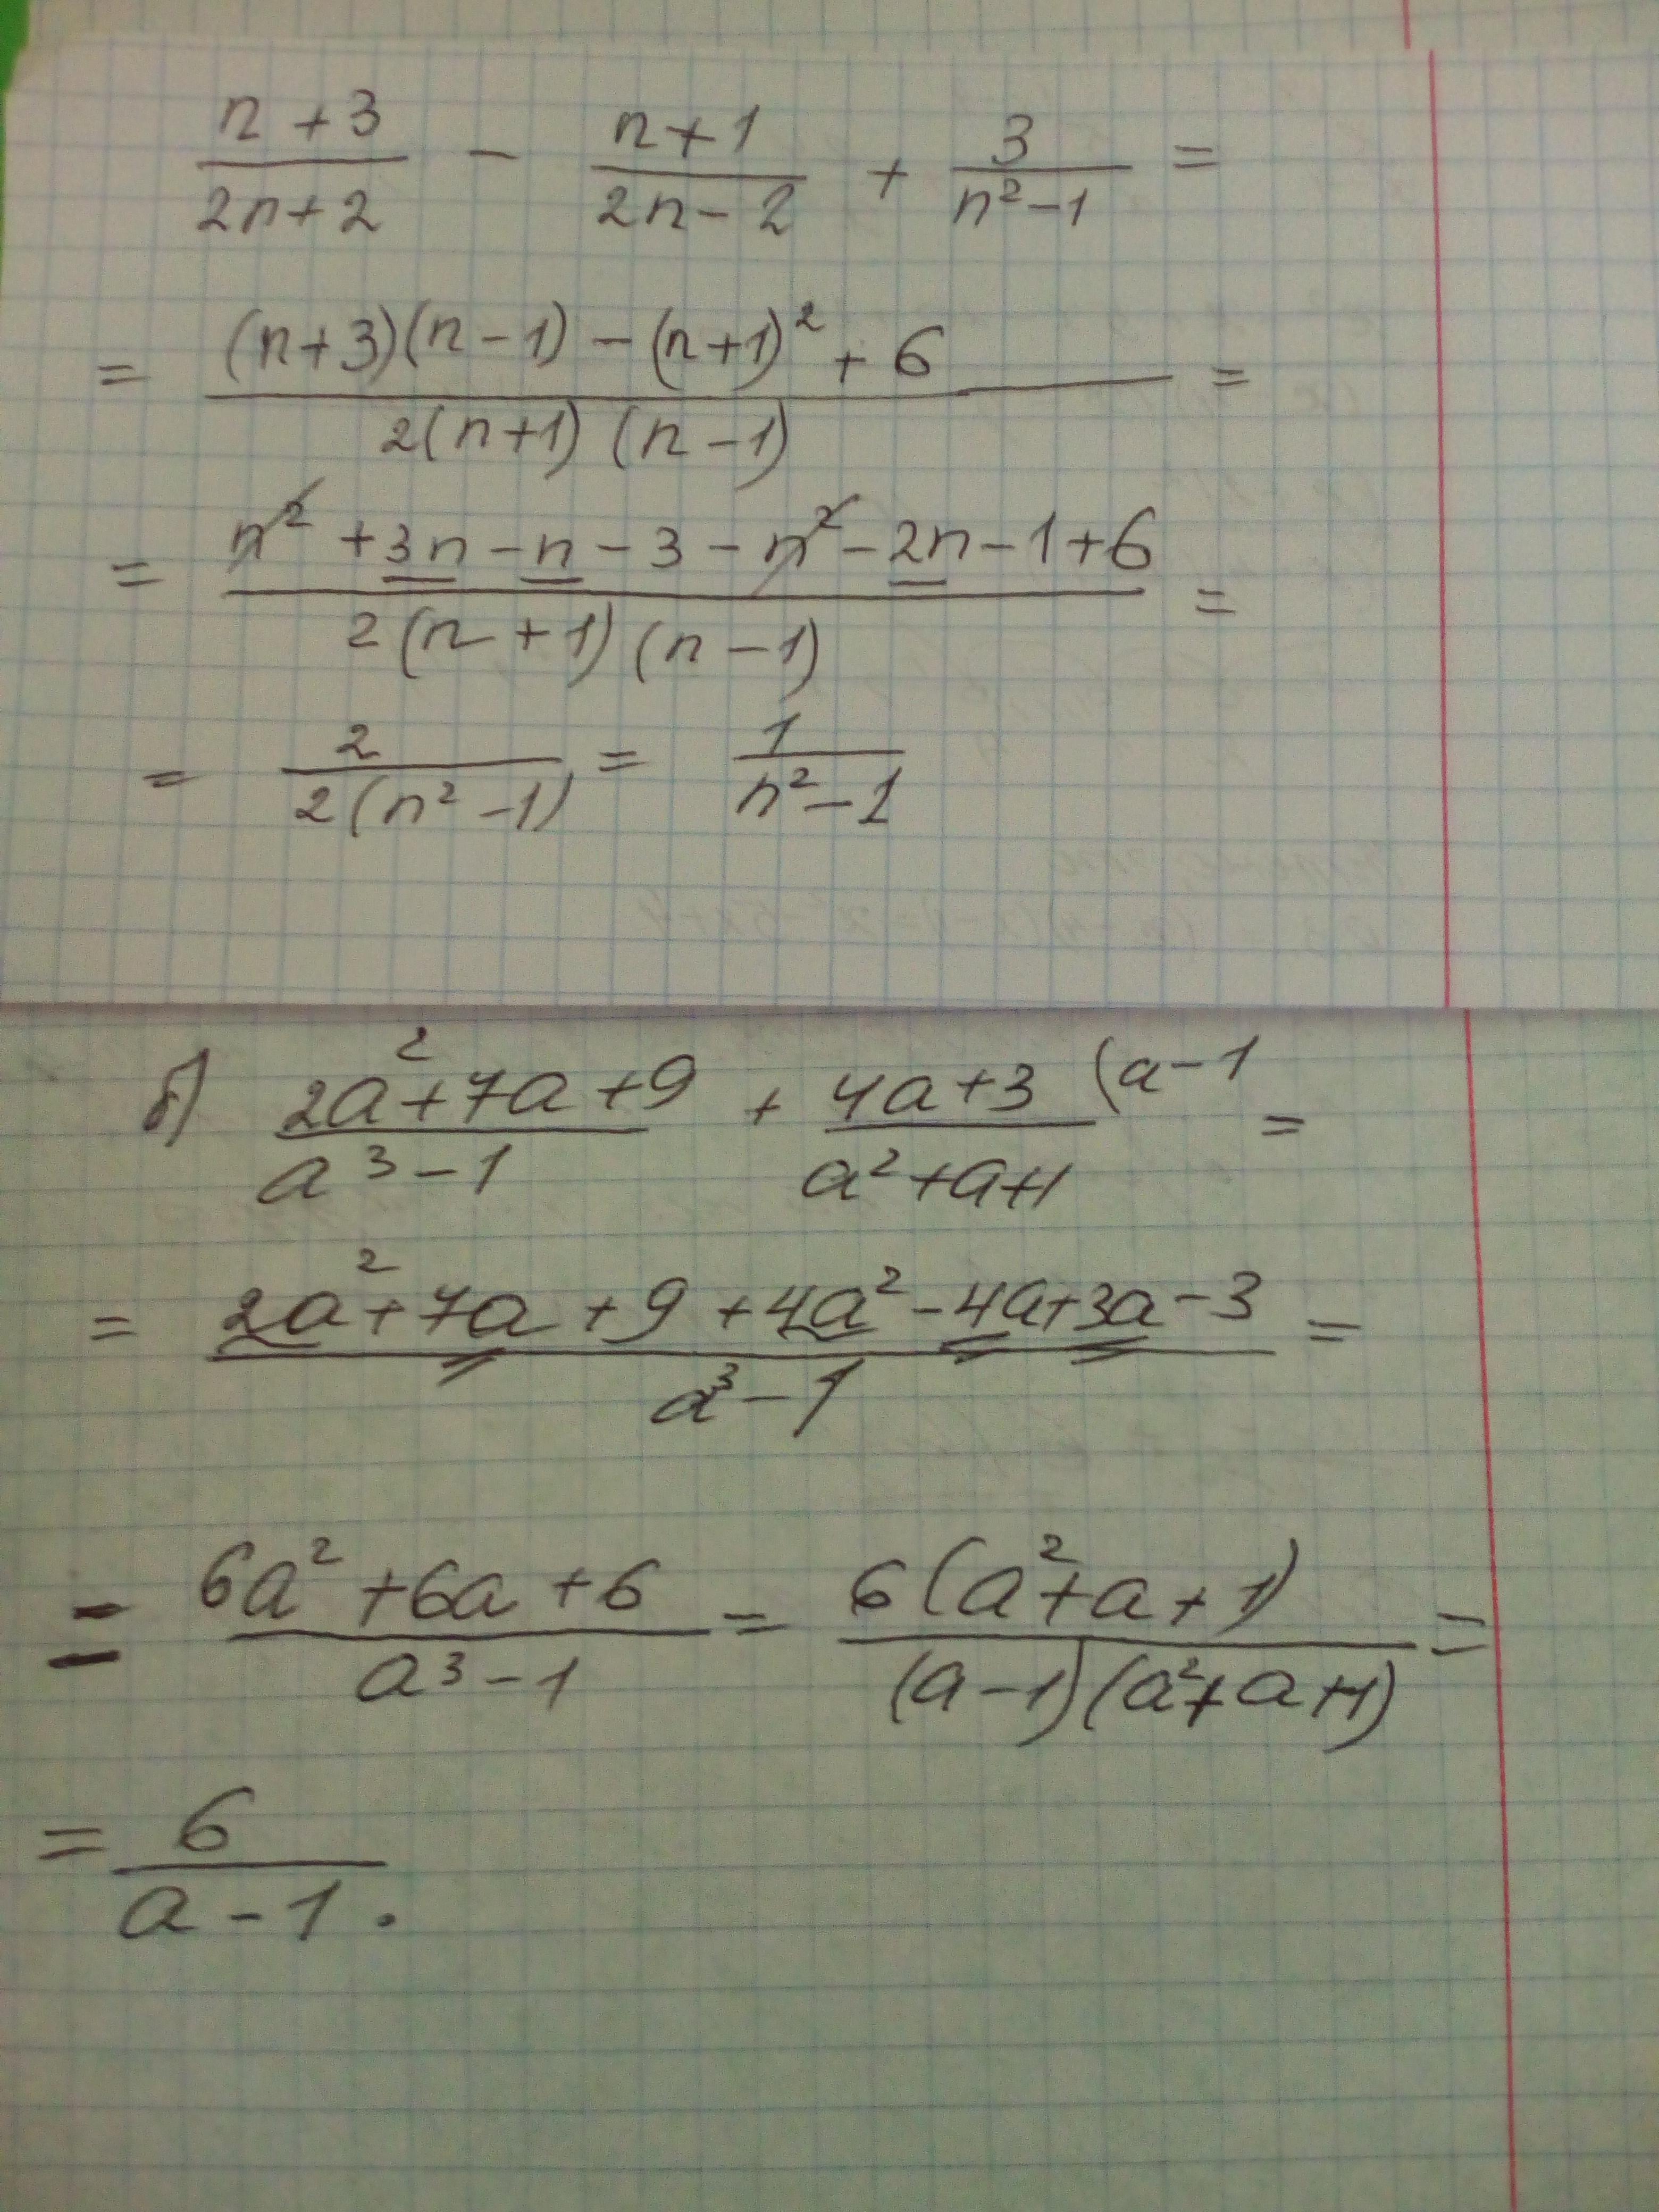 (n+3)/(2n+2) - (n+1)/(2n-2) + 3/(n²-1) =
= ((n+3)(n-1) - (n+1)² + 6)/(2(n+1)(n-1)) =
= (n² + 3n - n - 3 - n² - 2n - 1 + 6)/(2(n+1)(n-1)) =
= 2/(2(n²-1)) = 1/(n²-1)
б) (2a²+7a+9)/(a³-1) + (4a+3)/(a²+a+1) (a-1 =
= (2a²+7a+9+4a²-4a+3a-3)/(a³-1) =
= (6a²+6a+6)/(a³-1) = 6(a²+a+1)/((a-1)(a²+a+1)) =
= 6/(a-1).